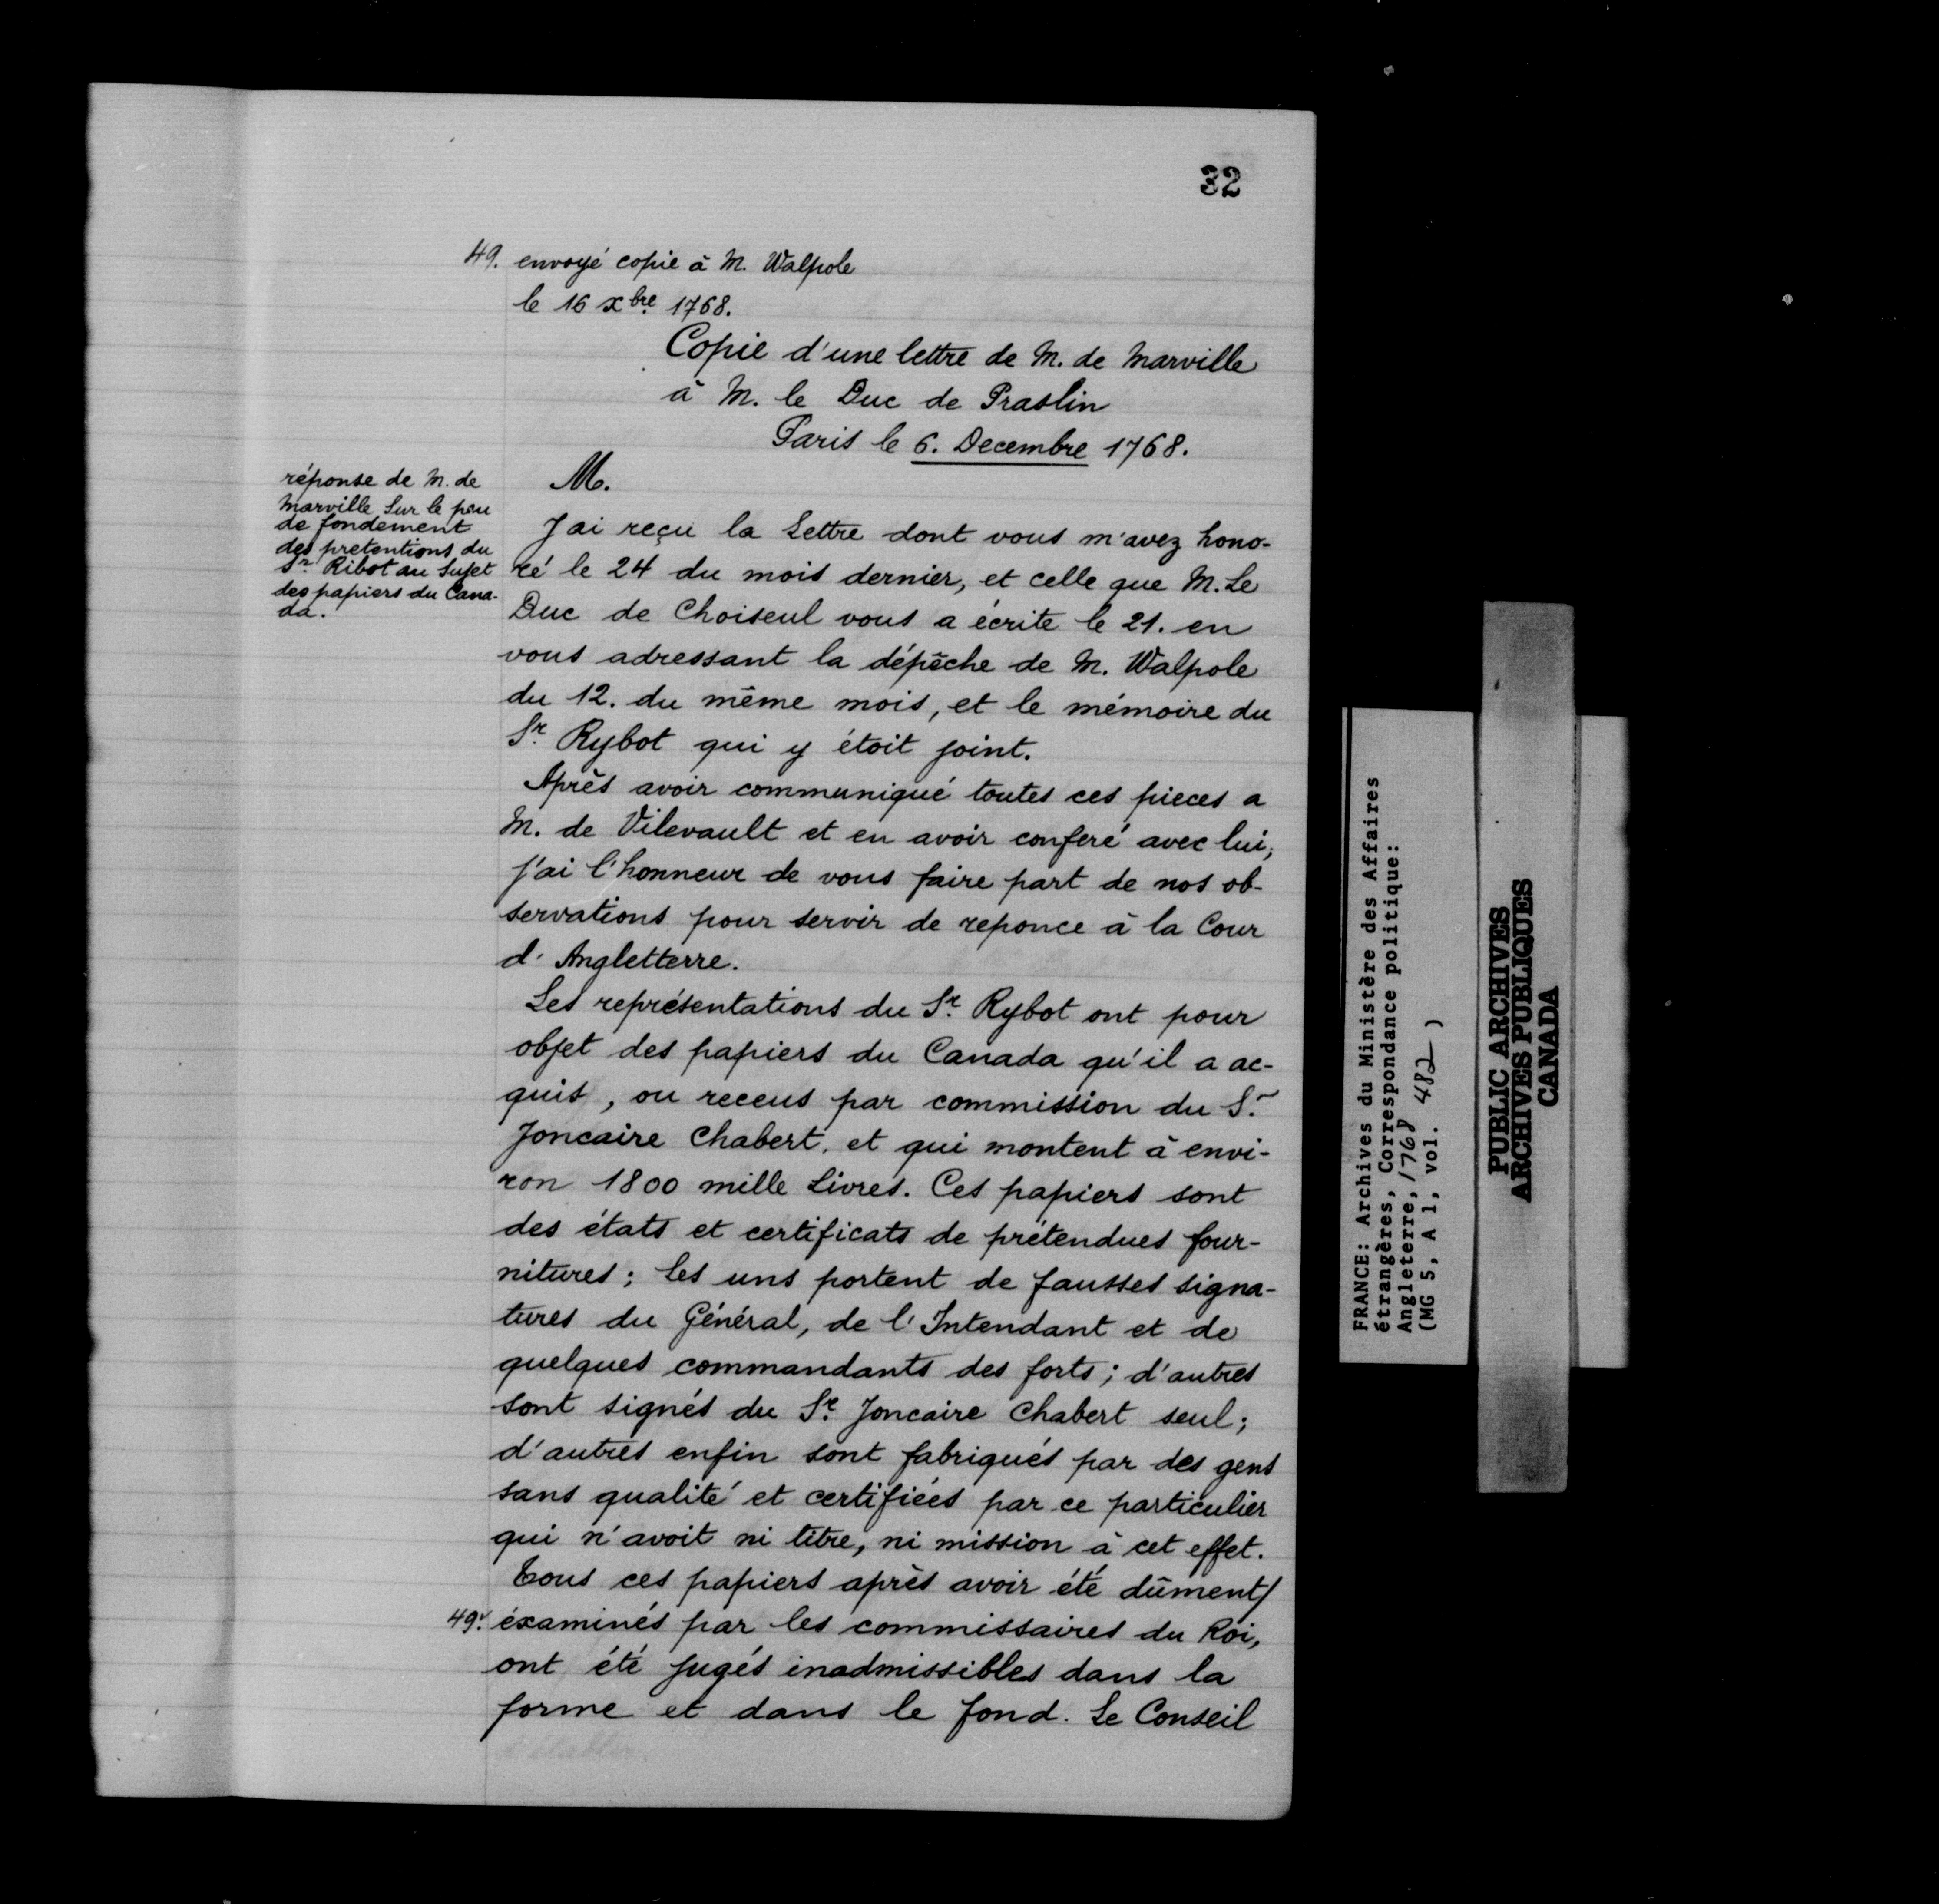 32
49. envoyé copie à M. Walpole
le 16 xbre 1768.
Copie d'une lettre de M. de Marville
à M. le Duc de Praslin
Paris le 6. Decembre 1768.
réponse de M. de
Marville Sur le peu
de fondement
des pretentions du
Sr. Ribot au Sujet
des papiers du Cana-
da.
M.
J'ai reçu la Lettre dont vous m'avez hono-
ré le 24 du mois dernier, et celle que M. Le
Duc de Choiseul vous a écrite le 21. en
vous adressant la dépêche de M. Walpole
du 12. du même mois, et le mémoire du
Sr. Rybot qui y étoit joint.
Après avoir communiqué toutes ces pieces a
M. de Vilevault et en avoir conferé avec lui,
j'ai l'honneur de vous faire part de nos ob-
servations pour servir de reponce à la Cour
d'Angletterre.
Les représentations du Sr. Rybot ont pour
objet des papiers du Canada qu'il a ac-
quis, ou receus par commission du Sr.
Joncaire Chabert. et qui montent à envi-
ron 1800 mille Livres. Ces papiers sont
des états et certificats de prétendues four-
nitures; les uns portent de fausses signa-
tures du Général, de l'Intendant et de
quelques commandants des forts; d'autres
sont signés du Sr. Joncaire Chabert seul;
d'autres enfin sont fabriqués par des gens
sans qualité et certifiées par ce particulier
qui n'avoit ni titre, ni mission à cet effet.
Tous ces papiers après avoir été dûment/
49v. éxaminés par les commissaires du Roi,
ont été jugés inadmissibles dans la
forme et dans le fond. Le Conseil
FRANCE: Archives du Ministère des Affaires
étrangères, Correspondance politique:
Angleterre, 1768
(MG 5, A 1, vol. 482 )
PUBLIC ARCHIVES
ARCHIVES PUBLIQUES
CANADA